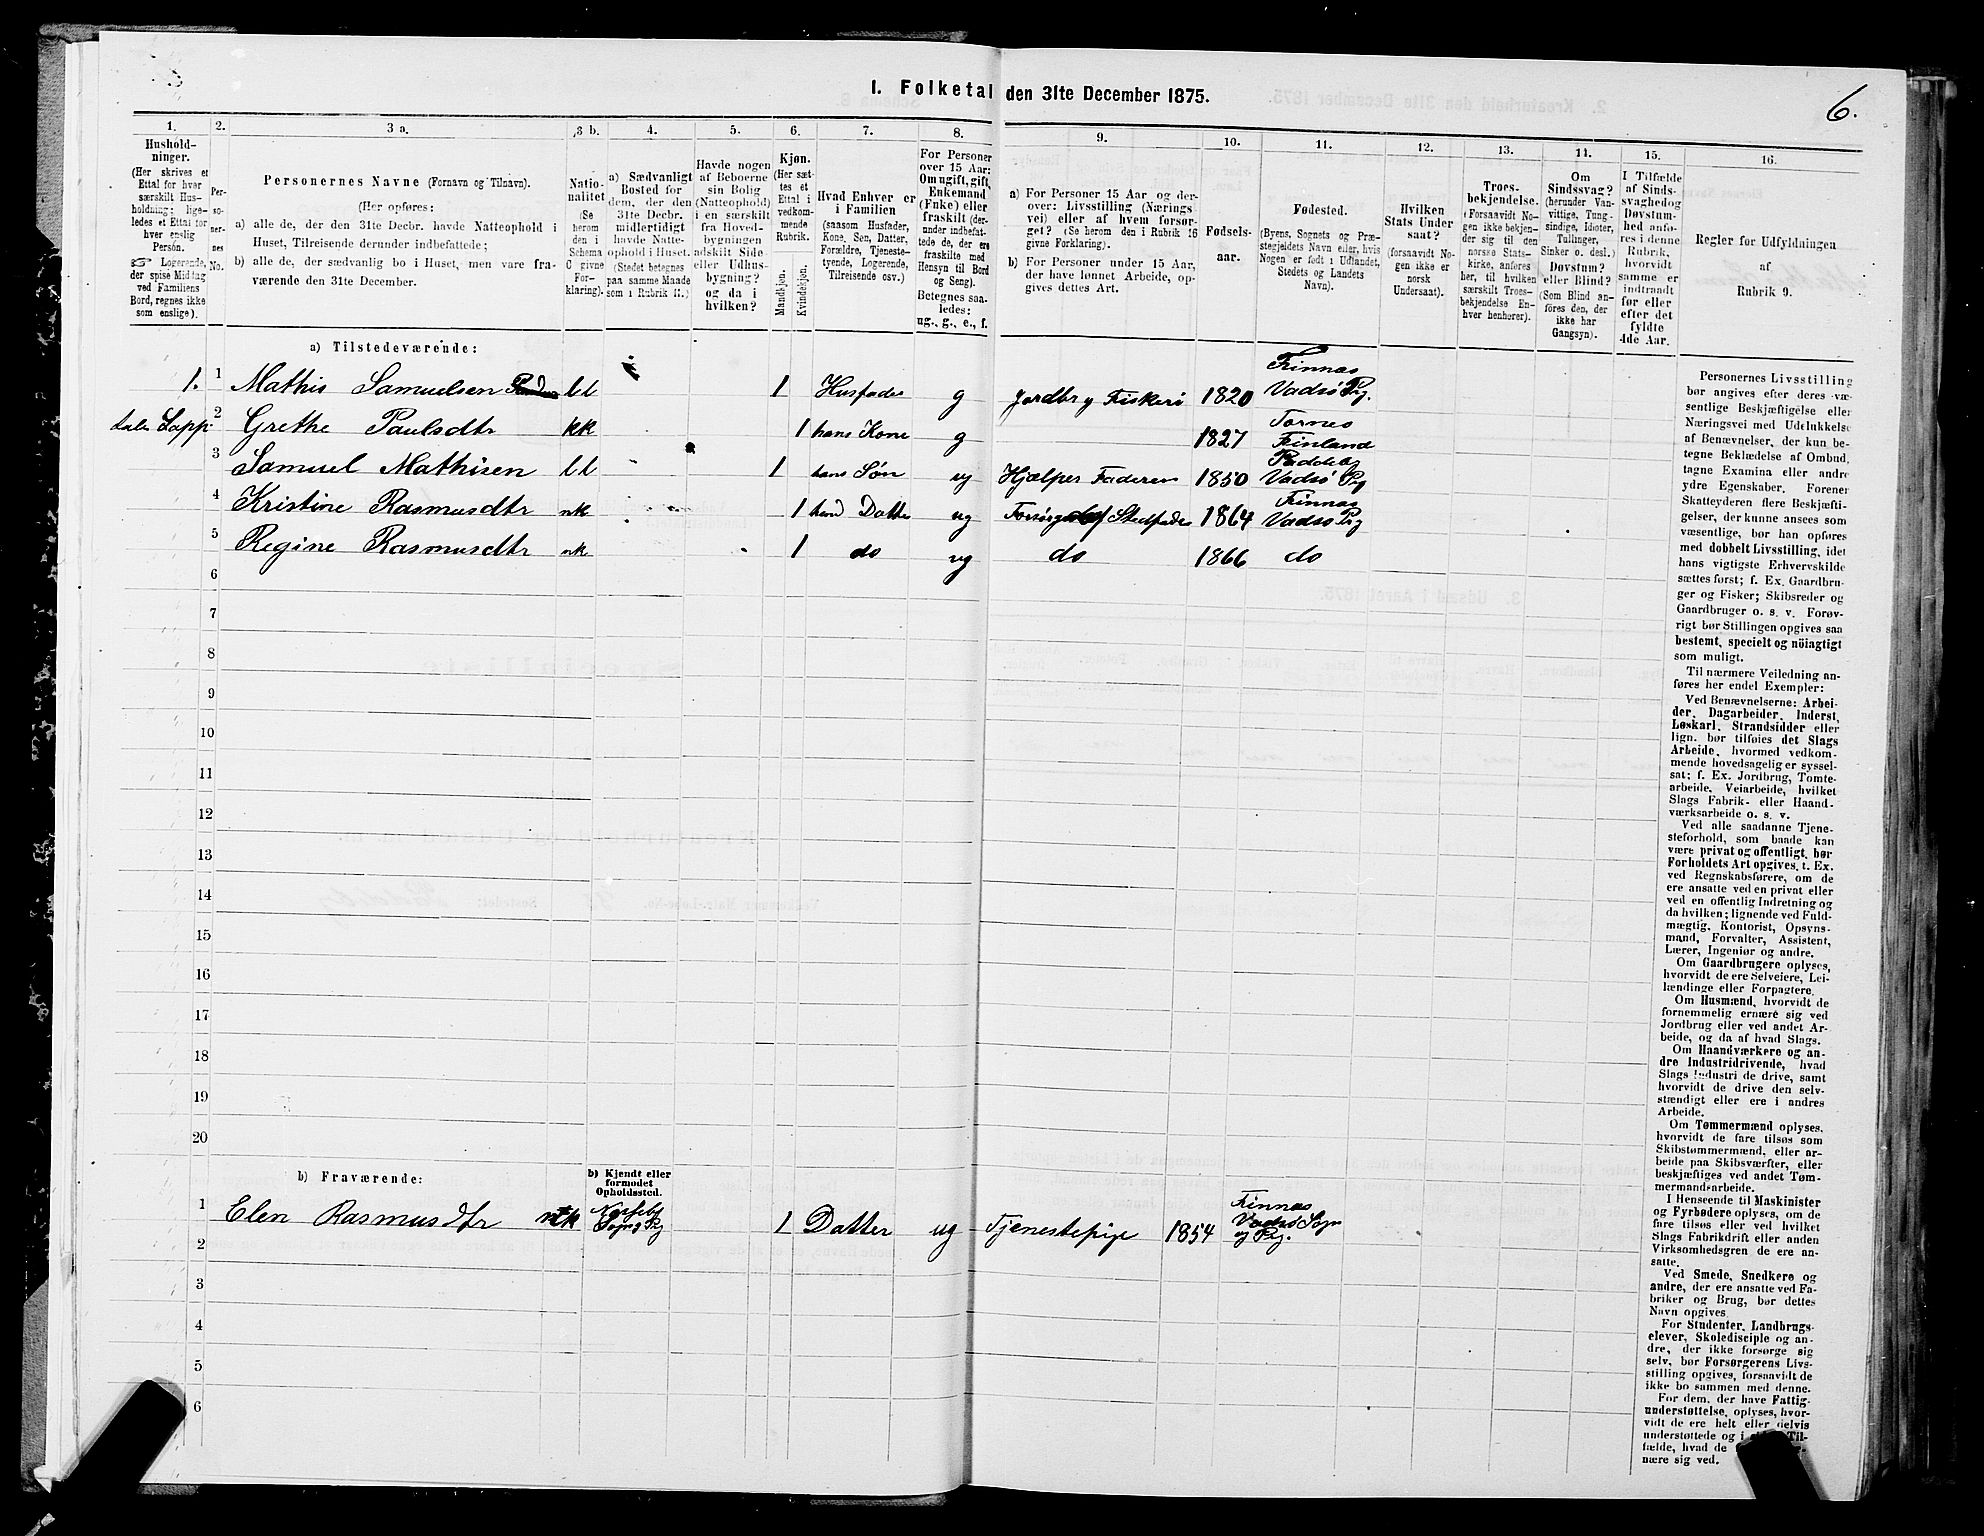 I. Folketal den 31te December 1875.
6.
1.
Hushold-
ninger.
(Her skrives et
Ettal for hver
særskilt Hus-
holdning; lige-
ledes et Ettal for
hver enslig
Person.
☞ Logerende,
der spise Middag
ved Familiens
Bord, regnes ikke
som enslige).
2.
Per-
so-
ner-
nes
No.
3 a.
Personernes Navne (Fornavn og Tilnavn).
(Her opføres:
a) alle de, der den 31te Decbr. havde Natteophold i
Huset, Tilreisende derunder indbefattede;
b) alle de, der sædvanlig bo i Huset, men vare fra-
værende den 31te December.
3 b.
Natio-
nalitet
(Se
herom
den i
Schema
C givne
For-
klaring).
4.
a) Sædvanligt
Bosted for
dem, der den
31te Decbr.
midlertidigt
havde Natte-
ophold i Huset.
(Stedet betegnes
paa samme Maade
som i Rubrik 11.)
5.
Havde nogen
af Beboerne
sin Bolig
(Natteophold)
i en særskilt
fra Hoved-
bygningen
adskilt Side-
eller Udhus-
bygning?
og da i
hvilken?
6.
Kjøn.
(Her sæt-
tes et
Ettal i
vedkom-
mende
Rubrik.
Mandkjøn.
Kvindekjøn.
7.
Hvad Enhver er
i Familien
(saasom Husfader,
Kone, Søn, Datter,
Forældre, Tjeneste-
tyende, Logerende,
Tilreisende osv.)
8.
For Personer
over 15 Aar:
Om ugift, gift,
Enkemand
(Enke) eller
fraskilt (der-
under indbefat-
tede de, der ere
fraskilte med
Hensyn til Bord
og Seng).
Betegnes saa-
ledes:
ug., g., e., f.
9.
a) For Personer 15 Aar og der-
over: Livsstilling (Nærings
vei) eller af hvem forsør-
get? (Se herom den i Rubrik 16
givne Forklaring).
b) For Personer under 15 Aar,
der have lønnet Arbeide, op-
gives dettes Art.
10.
Fødsels-
aar.
11.
Fødested.
(Byens, Sognets og Præ-
stegjeldets Navn eller, hvis
Nogen er født i Udlandet,
Stedets og Landets
Navn).
12.
Hvilken
Stats Under
saat?
(forsaavidt No-
gen ikke er
norsk
Undersaat).
13.
Troes-
bekjendelse.
(Forsaavidt No-
gen ikke bekjen-
der sig til den
norske Stats-
kirke, anføres
her, til hvilken
særskilt Troes-
bekjendelse En-
hver henhører).
14.
Om
Sindssvag?
(herunder Van-
vittige, Tung-
sindige, Idioter,
Tullinger,
Sinker o. desl.)
Døvstum?
eller Blind?
(Som Blind an-
føres den, der
ikke har
Gangsyn).
15.
I Tilfælde
af Sinds-
svaghed og
Døvstum-
hed anfø-
res i denne
Rubrik,
hvorvidt
samme er
indtraadt
før eller
efter det
fyldte
4de Aar.
16.
Regler for Udfyldningen
af
Rubrik 9.
a) Tilstedeværende:
1. 1 Mathis Samuelsen ll 1 Husfader g Jordbr og Fiskeri 1820 Finnæs Vadsø Pg.
taler Lapp: 2 Grethe Paulsdtr kk 1 hans Kone g 1827 Torneo Finland
3 Samuel Mathisen ll 1 hans Søn ug Hjælper Faderen 1850 Paddeby Vadsø Pg
4 Kristine Rasmusdtr nk 1 hend Datter ug Forsørges af Stedfader 1864 Finnæs Vadsø Pg
5 Regine Rasmusdtr nk 1 do ug do 1866 do
6
7
8
9
10
11
12
13
14
15
16
17
18
19
20
b) Fraværende:
b) Kjendt eller
formodet
Opholdssted.
1 Elen Rasmusdtr nk Næsseby Sogn og Pg 1 Datter ug Tjenestepige 1854 Finnæs Vadsø Sogn og Pg.
2
3
4
5
6
Personernes Livsstilling
bør angives efter deres væ-
sentlige Beskjæftigelse eller
Næringsvei med Udelukkelse
af Benævnelser, der kun be-
tegne Beklædelse af Ombud,
tagne Examina eller andre
ydre Egenskaber. Forener
Skatteyderen flere Beskjæfti-
gelser, der kunne ansees som
væsentlige, bør han opføres
med dobbelt Livsstilling, idet
hans vigtigste Erhvervskilde
sættes først; f. Ex. Gaardbru-
ger og Fisker; Skibsreder og
Gaardbruger o. s. v. Forøv-
rigt bør Stillingen opgives saa
bestemt, specielt og nöiagtigt
som muligt.
Til nærmere Veiledning an-
føres her endel Exempler:
Ved Benævnelserne: Arbei-
der, Dagarbeider, Inderst,
Løskarl, Strandsidder eller
lign. bør tilføies det Slags
Arbeide, hvormed vedkom-
mende hovedsagelig er syssel-
sat; f. Ex. Jordbrug, Tomte-
arbeide, Veiarbeide, hvilket
Slags Fabrik- eller Haand-
værksarbeide o. s. v.
Ved alle saadanne Tjene-
steforhold, som baade kan
være privat og offentligt, bør
Forholdets Art opgives, t. Ex.
ved Regnskabsførere, om de
ere ansatte ved en privat eller
ved en offentlig Indretning og
da hvilken; lignende ved Fuld-
mægtig, Kontorist, Opsyns-
mand, Forvalter, Assistent,
Lærer, Ingeniør og andre.
Om Gaardbrugere oplyses,
hvorvidt de ere Selveiere, Lei-
lændinge eller Forpagtere.
Om Husmænd, hvorvidt de
fornemmelig ernære sig ved
Jordbrug eller ved andet Ar-
beide, og da af hvad Slags.
Om Haandværkere og an-
dre Industridrivende, hvad
Slags Industri de drive, samt
hvorvidt de drive den selv-
stændigt eller ere i andres
Arbeide.
Om Tømmermænd oplyses,
hvorvidt de fare tilsøs som
Skibstømmermænd, eller ar-
beide paa Skibsværfter, eller
beskjæftiges ved andet Tøm-
mermandsarbeide.
I Henseende til Maskinister
og Fyrbødere oplyses, om de
fare tilsøs eller ved hvilket
Slags Fabrikdrift eller anden
Virksomhedsgren de ere an-
satte.
Ved Smede, Snedkere og
andre, der ere ansatte ved Fa-
briker og Brug, bør dettes
Navn opgives
For Studenter, Landbrugs-
elever, Skoledisciple og an-
dre, der ikke forsørge sig
selv, bør Forsørgerens Livs-
stilling opgives, forsaavidt de
ikke bo sammen med denne.
For dem, der have Fattig-
understøttelse, oplyses, hvor-
vidt de ere helt eller delvis
understøttede og i Til-
fælde, hvad de
nære sig ved.